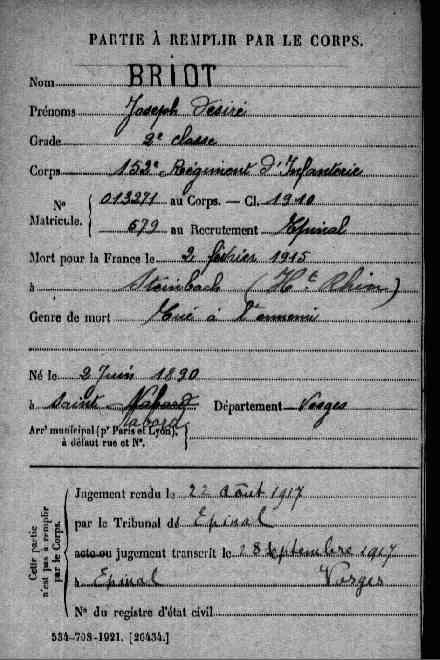 PARTIE À REMPLIR PAR LE CORPS.
Nom BRIOT
Prénoms Joseph Désiré
Grade 2e classe
Corps 152e Régiment d'Infanterie
No Matricule. 013271 au Corps. — Cl. 1910
679 au Recrutement Epinal
Mort pour la France le 2 février 1915
à Steinbach (Ht Rhin)
Genre de mort Tué à l'ennemi
Né le 2 Juin 1890
à Saint Nabord Département Vosges
Nabord
Arrt municipal (pr Paris et Lyon),
à défaut rue et No.
Cette partie
n'est pas à remplir
par le Corps.
Jugement rendu le 22 Août 1917
par le Tribunal de Epinal
acte ou jugement transcrit le 28 Septembre 1917
à Epinal Vosges
No du registre d'état civil
534-708-1921. [26434.]